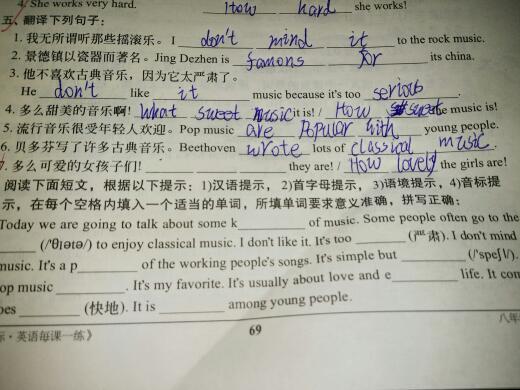 4. She works very hard. How hard she works!
五、翻译下列句子:
1. 我无所谓听那些摇滚乐。I don't mind it to the rock music.
2. 景德镇以瓷器而著名。Jing Dezhen is famons for its china.
3. 他不喜欢古典音乐,因为它太严肃了。
He don't like it music because it's too serious.
4. 多么甜美的音乐啊! What sweet music it is! / How sweet the music is!
5. 流行音乐很受年轻人欢迎。Pop music are Popular with young people.
6. 贝多芬写了许多古典音乐。Beethoven wrote lots of classical music.
7. 多么可爱的女孩子们! ______ ______ ______ they are! / How lovely the girls are!
阅读下面短文,根据以下提示:1)汉语提示,2)首字母提示,3)语境提示,4)音标提
示,在每个空格内填入一个适当的单词,所填单词要求意义准确,拼写正确:
Today we are going to talk about some k________ of music. Some people often go to the
________ (/'θɪətə/) to enjoy classical music. I don't like it. It's too ________ (严肃). I don't mind
music. It's a p________ of the working people's songs. It's simple but ________ (/'speʃl/).
op music ________. It's my favorite. It's usually about love and e________ life. It com
oes ________ (快地). It is ________ among young people.
69
示·英语每课一练》
八年